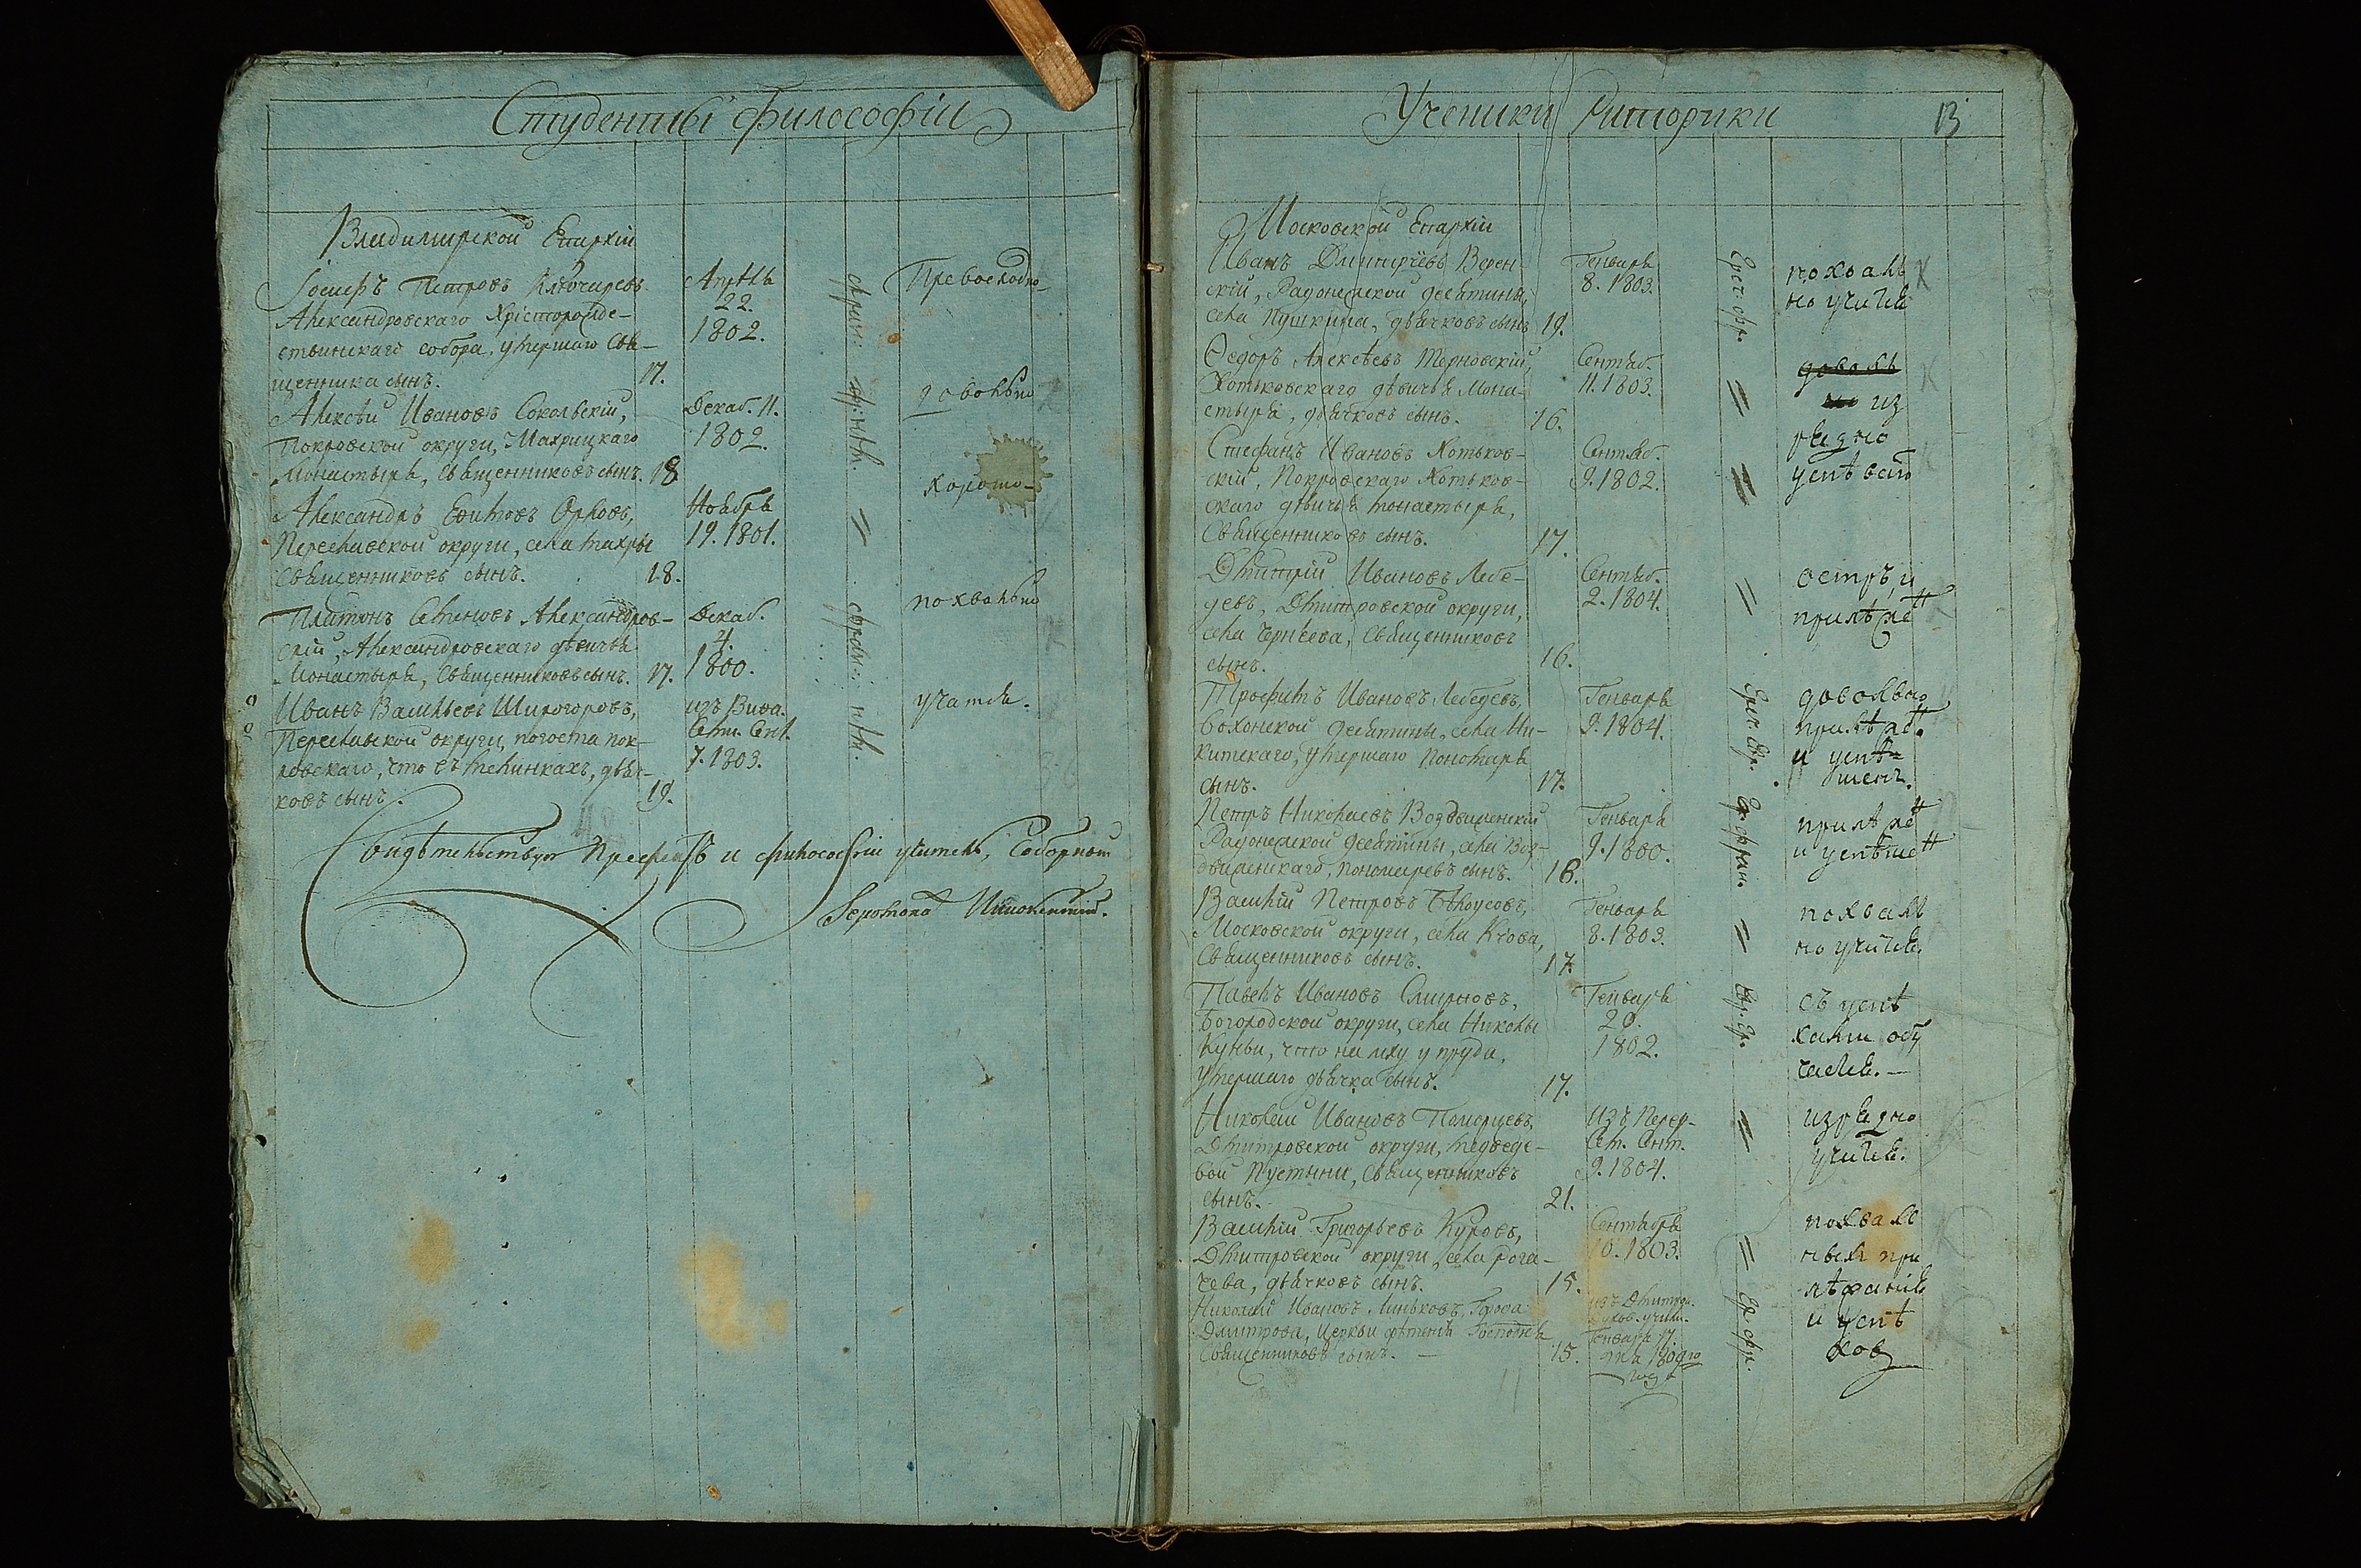 Студенты философіи
Владимирской Епархіи
Іосифъ Петровъ Ключаревъ
Александровскаго Христорожде-
ственскаго собора, умершаго Свя-
щенника сынъ. 17.
Апрѣля
22.
1802.
франц: нѣм:
Превосходно
Алексѣй Ивановъ Сокольскій,
Покровской округи, Махрицкаго
Монастыря, священниковъ сынъ. 18
Декаб. 11.
1802
довольно
Александръ Ефимовъ Орловъ,
Переславской округи, села Махры
священниковъ сынъ. 18.
Ноября
19. 1801.
хорошо
Платонъ Семеновъ Александров-
скій, Александровскаго дѣвичья
Монастыря, Священниковъ сынъ. 17.
Декаб.
4.
1800.
франц: нѣм.
похвально
Иванъ Васильевъ Широгоровъ,
Переславской округи, погоста пок-
ровскаго, что въ телинкахъ, дьяч-
ковъ сынъ. 19.
изъ Виѳа.
Сем. Сент.
7. 1803.
учатся.
Свидѣтельствуетъ Префектъ и философіи учитель, Соборный
Іеромонахъ Иннокентій.
Ученики Риторики
13
Московской Епархіи
Иванъ Дмитріевъ Верен-
скій, Радонежской десятины,
села Пушкина, дьячковъ сынъ 19.
Генваря
8. 1803.
Греч: фр.
похваль
но учился
Ѳедоръ Алексѣевъ Терновскій,
Хотьковскаго дѣвичья Мона-
стыря, дьячковъ сынъ. 16.
Сентяб.
11. 1803.
доволь
но из
рядно
Стефанъ Ивановъ Хотьков-
скій, Покровскаго Хотьков-
скаго дѣвичья монастыря,
Священниковъ сынъ. 17.
Сентяб.
9. 1802.
успѣвалъ
Дмитрій Ивановъ Лебе-
девъ, Дмитровской округи,
села Чернѣева, Священниковъ
сынъ. 16.
Сентяб.
2. 1804.
остръ, и
прилѣженъ
Трофимъ Ивановъ Лебедевъ,
Вохонской десятины, села Ни-
китскаго, умершаго Пономаря
сынъ. 17.
Генваря
9. 1804.
Греч. Фр.
довольно
прилѣже.
и успѣ
шенъ.
Петръ Николаевъ Воздвиженскій
Радонежской десятины, села Воз-
движенскаго, пономаревъ сынъ. 16.
Генваря
9. 1800.
Гр. фран.
прилѣженъ
и успѣшенъ
Василій Петровъ Бѣлоусовъ,
Московской округи, села Кіова,
Священниковъ сынъ. 17.
Генваря
8. 1803.
похваль
но учился.
Павелъ Ивановъ Смирновъ,
Богородской округи, села Николы
Куньи, что на мху у пруда,
умершаго дьячка сынъ. 17.
Генваря
20.
1802.
съ успѣ
хами обу
чался.
Николай Ивановъ Поморцевъ,
Дмитровской округи, медведе-
вой Пустыни, Священниковъ
сынъ. 21.
Изъ Перер-
Сем. Сент.
9. 1804.
изрядно
учился.
Василій Григорьевъ Куровъ,
Дмитровской округи, села Рога-
чева, дьячковъ сынъ. 15.
Сентября
10. 1803.
похваль
ныя при
лѣжанія
и успѣ
ховъ
Николай Ивановъ Линьковъ, Города
Дмитрова, Церкви срѣтенія Господня
Священниковъ сынъ. 15.
изъ Дмитров.
Духов. учили.
Генваря 17.
дня 1804го
года
Гр. фр.